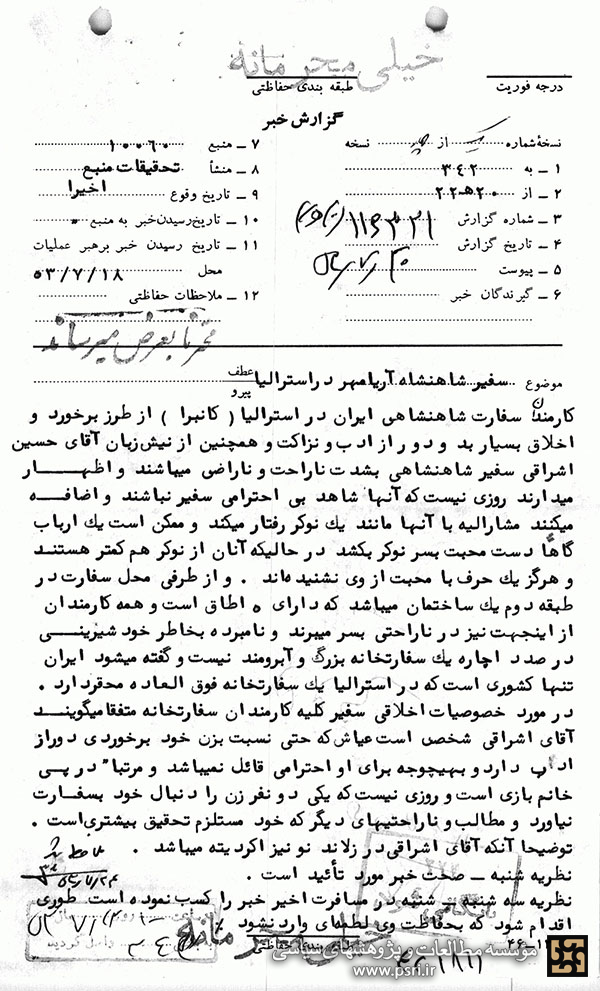 خیلی محرمانه
درجه فوریت
طبقه بندی حفاظتی
گزارش خبر
نسخهٔ شماره یک از نسخه
۱ ــ به ۳۴۲
۲ ــ از ۲۰هـ۲۲
۳ ــ شماره گزارش
۴ ــ تاریخ گزارش
۵ ــ پیوست
۶ ــ گیرندگان خبر
۷ ــ منبع ۱۰۰۶۰
۸ ــ منشأ تحقیقات منبع
۹ ــ تاریخ وقوع اخیرا
۱۰ ــ تاریخ رسیدن خبر به منبع ۰
۱۱ ــ تاریخ رسیدن خبر برهبر عملیات
محل ۵۳/۷/۱۸
۱۲ ــ ملاحظات حفاظتی
محترماً بعرض میرساند
موضوع سفیر شاهنشاه آریامهر در استرالیا عطف
پیرو
کارمندان سفارت شاهنشاهی ایران در استرالیا ( کانبرا ) از طرز برخورد و
اخلاق بسیار بد و دور از ادب و نزاکت و همچنین از نیش زبان آقای حسین
اشراقی سفیر شاهنشاهی بشدت ناراحت و ناراضی میباشند و اظهار
میدارند روزی نیست که آنها شاهد بی احترامی سفیر نباشند و اضافه
میکنند مشارالیه با آنها مانند یك نوکر رفتار میکند و ممکن است یك ارباب
گاهاً دست محبت بسر نوکر بکشد در حالیکه آنان از نوکر هم کمتر هستند
و هرگز یك حرف با محبت از وی نشنیده‌اند . و از طرفی محل سفارت در
طبقه دوم یك ساختمان میباشد که دارای ۵ اطاق است و همه کارمندان
از اینجهت نیز در ناراحتی بسر میبرند و نامبرده بخاطر خود شیرینی
در صدد اجاره یك سفارتخانه بزرگ و آبرومند نیست و گفته میشود ایران
تنها کشوری است که در استرالیا یك سفارتخانه فوق العاده محقر دارد .
در مورد خصوصیات اخلاقی سفیر کلیه کارمندان سفارتخانه متفقا میگویند
آقای اشراقی شخص است عیاش که حتی نسبت بزن خود برخوردی دور از
ادب دارد و بهیچوجه برای او احترامی قائل نمیباشد و مرتبا" در پی
خانم بازی است و روزی نیست که یکی دو نفر زن را دنبال خود بسفارت
نیاورد و مطالب و ناراحتیهای دیگر که خود مستلزم تحقیق بیشتری است .
توضیحا آنکه آقای اشراقی در زلاند نو نیز اکردیته میباشد .
نظریه شنبه ــ صحت خبر مورد تأئید است .
نظریه سه شنبه ــ شنبه در مسافرت اخیر خبر را کسب نموده است طوری
اقدام شود که بحفاظت وی لطمه‌ای وارد نشود
خیلی محرمانه
طبقه بندی حفاظتی
موسسه مطالعات و پژوهشهای سیاسی
www.psri.ir